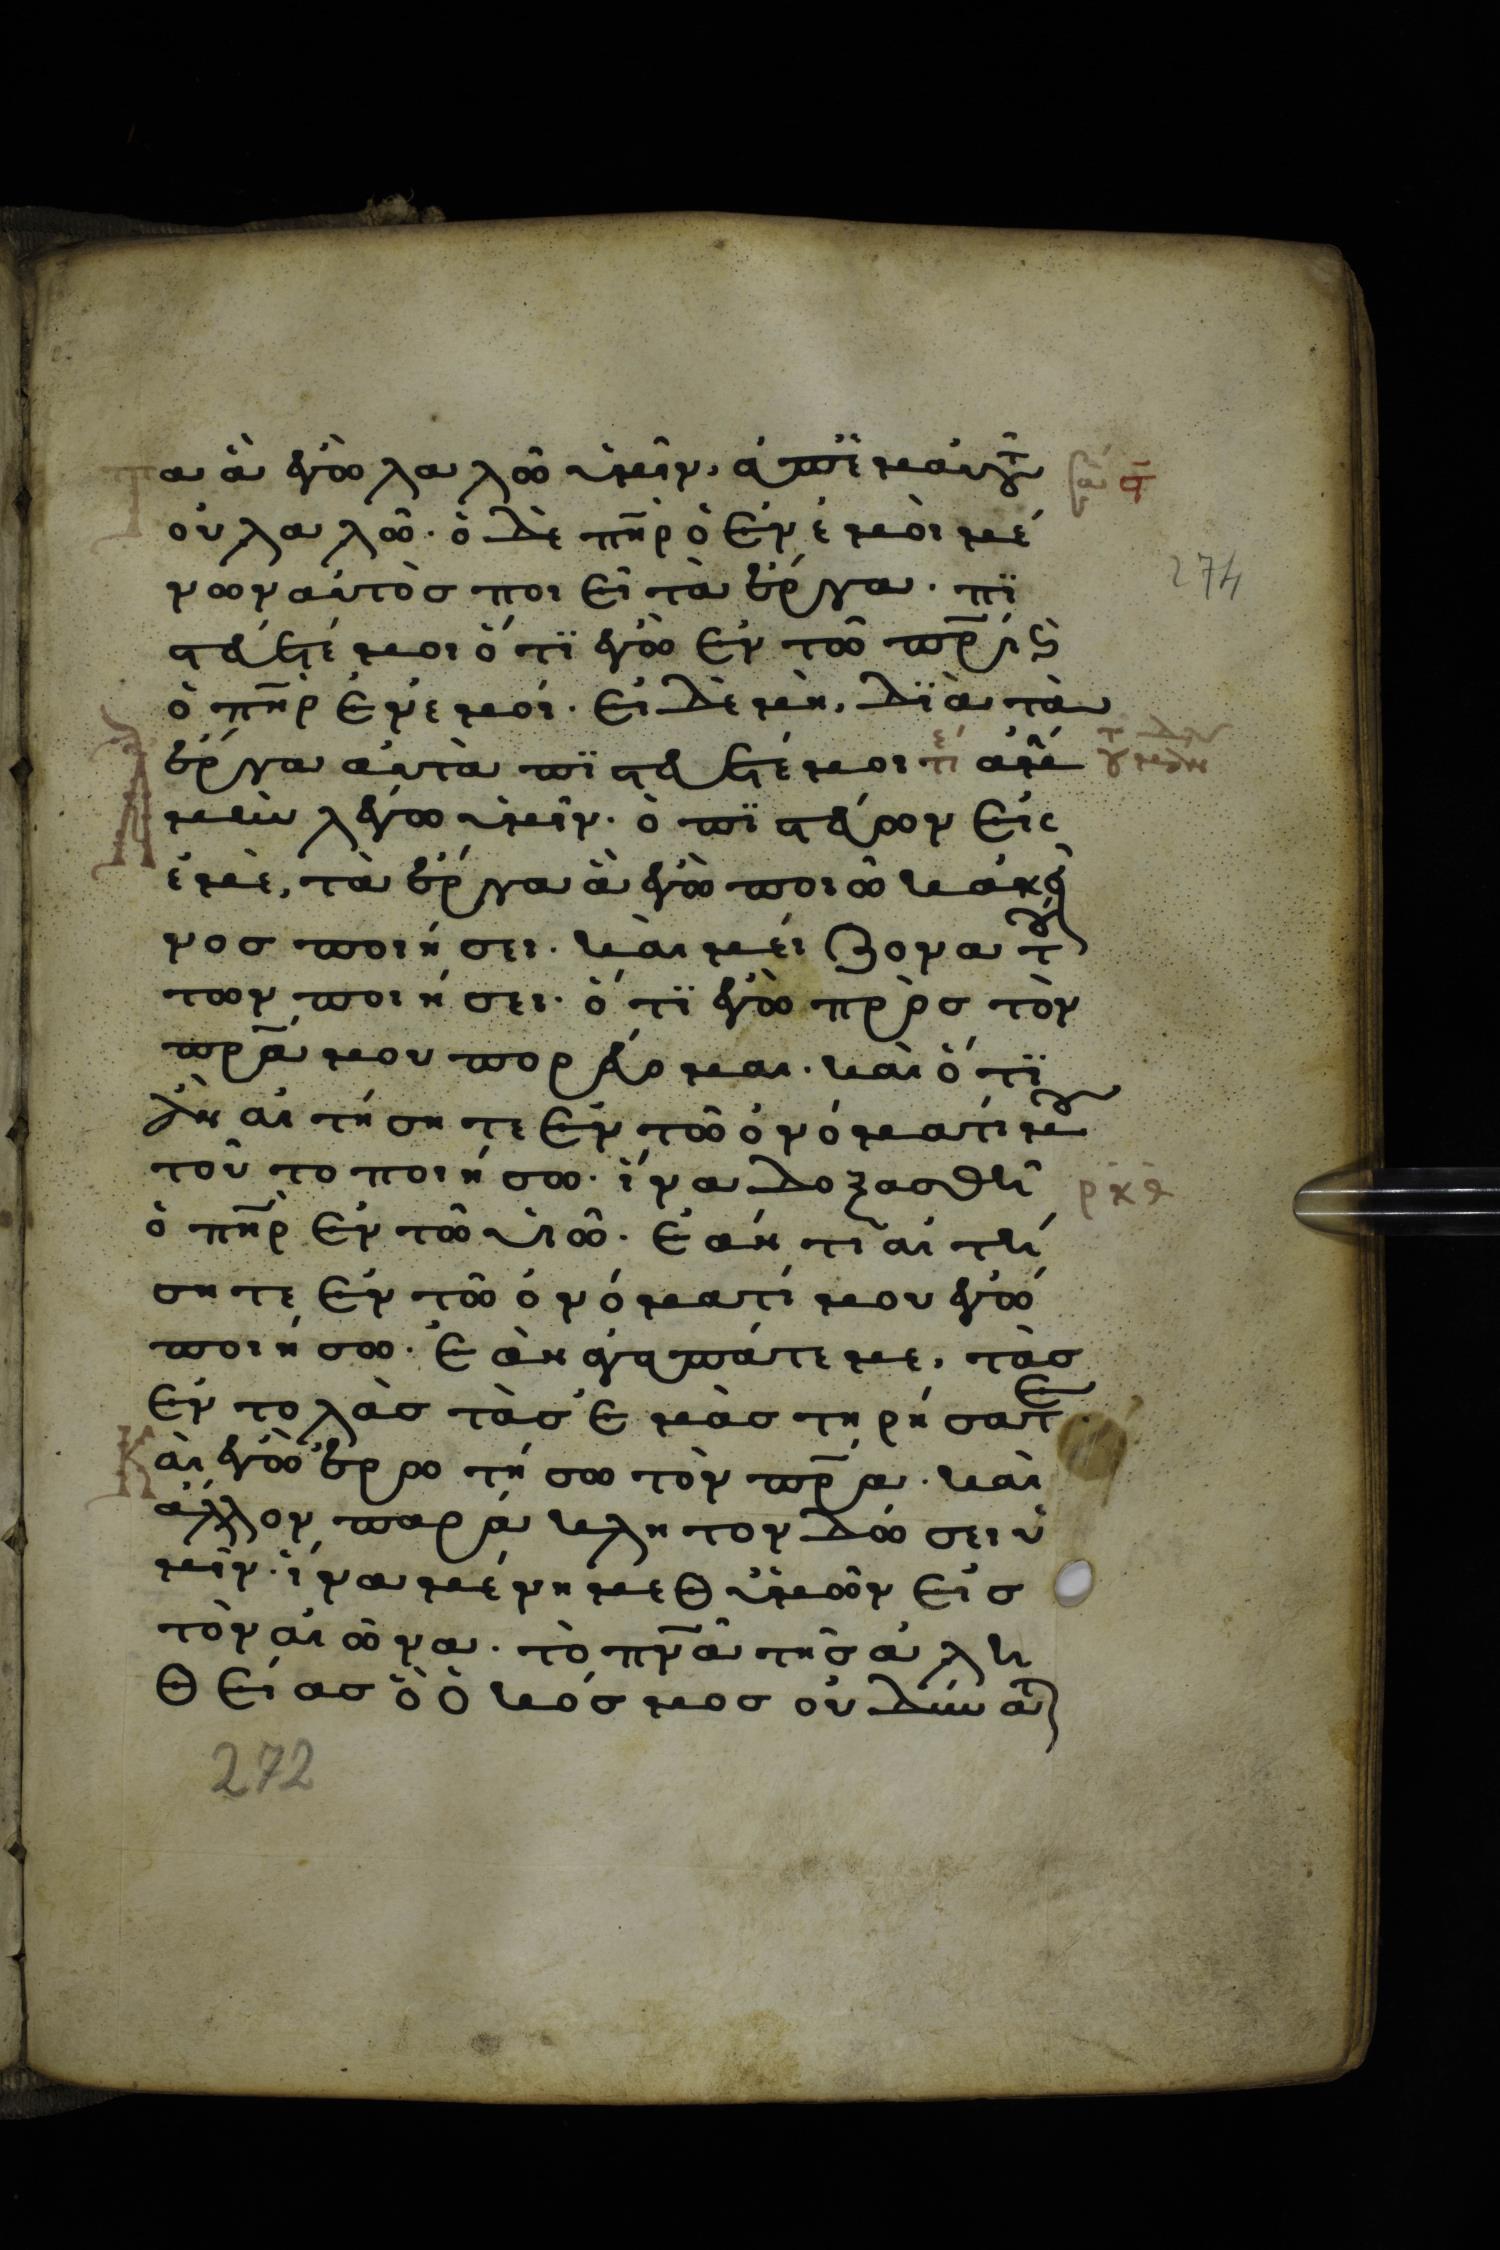 τα ἃ ἐγὼ λαλῶ ὑμῖν, ἀπ' ἐμαυτοῦ
οὐ λαλῶ· ὁ δὲ πη̅ρ ὁ ἐν ἐμοὶ μέ
274
νων αὐτὸς ποιεῖ τὰ ἔργα· πϊ
στεύετέ μοι ὅτϊ ἐγὼ ἐν τῶ πρ̅ι ϗ
ὁ πη̅ρ ἐν ἐμοί· εἰ δὲ μὴ, δϊὰ τὰ
ἔργα αὐτὰ πϊστεύετέ μοι ἀμὴ
μὴν λέγω ὑμῖν· ὁ πϊστεύων εἰς
ἐμὲ, τὰ ἔργα ἃ ἐγὼ ποιῶ κἀκεῖ
νος ποιήσει· καὶ μείζονα τού
των ποιήσει· ὅτϊ ἐγὼ πρὸς τὸν
πρ̅α μου πορεύομαι· καὶ ὅτϊ
ἂν αἰτήσητε ἐν τῶ ὀνόματί μου
τοῦτο ποιήσω· ἵνα δοξασθῆ
ρκθ
ὁ πη̅ρ ἐν τῶ υἱῶ· ἐάν τι αἰτή
σητε ἐν τῶ ὀνόματί μου ἐγώ
ποιήσω· ἐὰν ἀγαπάτέ με, τὰς
ἐντολὰς τὰς ἐμὰς τηρήσατε·
Καὶ ἐγὼ ἐρωτήσω τὸν πρ̅α· καὶ
ἄλλον παράκλητον δώσει ὑ
μῖν· ἵνα μένη μεθ ὑμῶν εἰς
τὸν αἰῶνα· τὸ πν̅α τῆς ἀλη
θείας ὃ ὁ κόσμος οὐ δύναται
272